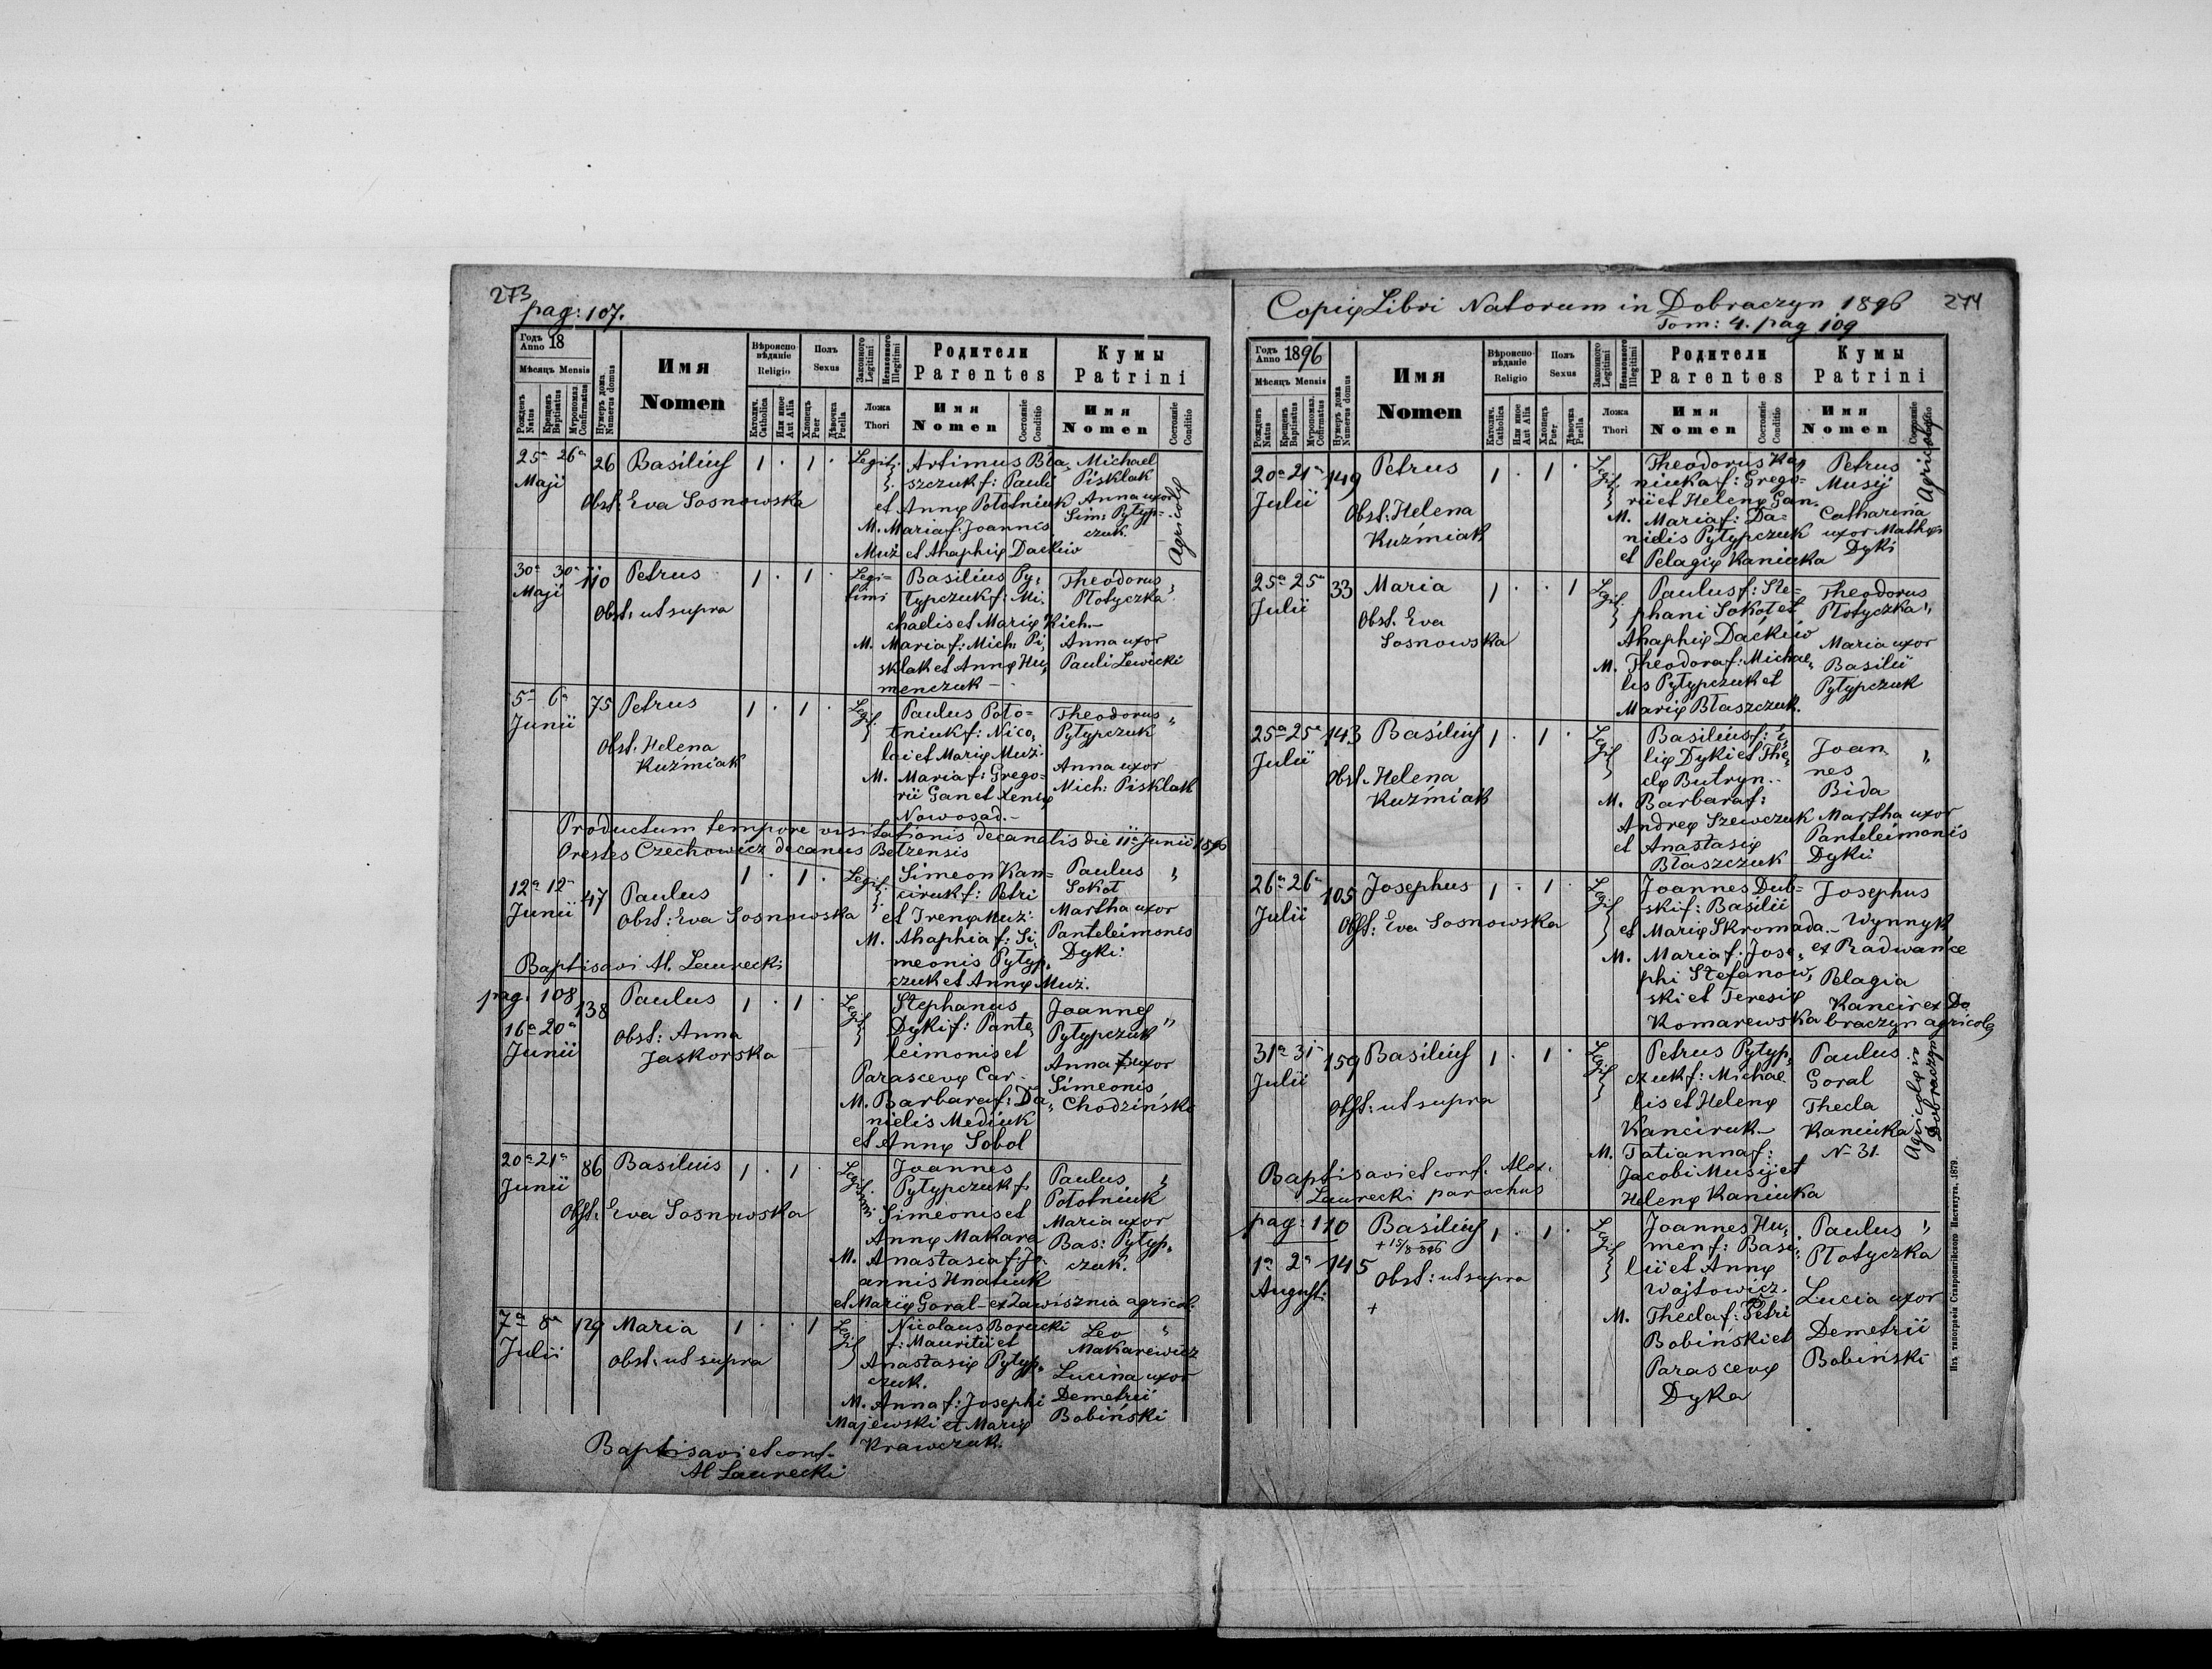 273
pag: 107.
Годъ Anno 18
Мѣсяцъ Mensis
Рожденъ Natus
Крещенъ Baptisatus
Муропомаз. Confirmatus
Нумеръ дома Numerus domus
Имя
Nomen
Вѣроисповѣданіе Religio
Католич. Catholica
Или иное Aut Alia
Полъ Sexus
Хлопецъ Puer
Дѣвочка Puella
Законного Legitimi
Незаконного Illegitimi
Ложа Thori
Родители Parentes
Имя Nomen
Состояніе Conditio
Кумы Patrini
Имя Nomen
Состояніе Conditio
25a 26a Maji 26 Basilius 1 . 1 . Legit.
Obst: Eva Sosnowska
Artimus Bła-
szczuk f: Pauli
et Annę Połotniuk
M. Maria f: Joannis
Muż et Ahaphię Dackiw
Michael
Pisklak
Anna uxor
Sim: Pytyp=
czuk.
Agricolę
30a 30a Maji 110 Petrus 1 . 1 . Legi=
timi
Obst: ut supra
Basilius Py,
typczuk f: Mi,
chaelis et Marię Kich.-
M. Maria f: Mich: Pi,
sklak et Annę Hu,
menczuk -
Theodorus "
Płotyczka
Anna uxor
Pauli Lewicki
5a 6a Junii 75 Petrus 1 . 1 . Legit.
Obst. Helena
Kuźmiak
Paulus Poło=
tniuk f: Nico,
lai et Marię Muż.
M. Maria f: Grego=
rii Gan et Xenię
Nowosad.-
Theodorus "
Pytypczuk
Anna uxor
Mich: Pisklak
Productum tempore visitationis decanalis die 11a Junii 1896
Orestes Czechowicz decanus Bełzensis
12a 12a Junii 47 Paulus 1 . 1 . Legit.
Obst: Eva Sosnowska
Simeon Kan=
ciruk f: Petri
et Irenę Muż.
M. Ahaphia f: Si,
meonis Pytyp,
czuk et Annę Muż.
Paulus "
Sokoł
Martha uxor
Panteleimonis
Dyki.
Baptisavi Al. Laurecki
pag. 108
16a 20a Junii 138 Paulus 1 . 1 . Legit
Obst: Anna
Jaskorska
Stephanus
Dyki f: Pante,
leimonis et
Parascevę Car-
M. Barbara f: Da,
nielis Mediuk
et Annę Sobol
Joannes "
Pytypczuk
Anna uxor
Simeonis
Chodziński
20a 21a Junii 86 Basilius 1 . 1 . Legitimi
Obst. Eva Sosnowska
Joannes
Pytypczuk f.
Simeonis et
Annę Makara
M. Anastasia f: Jo,
annis Hnatiuk
et Marię Goral - ex Zawisznia agricol.
Paulus "
Połotniuk
Maria uxor
Bas: Pytyp,
czuk.
7a 8a Julii 129 Maria 1 . . 1 Legit
Obst: ut supra
Nicolaus Borecki
f: Mauritii et
Anastasię Pytyp,
czuk.
M. Anna f: Josephi
Majewski et Marię
Krawczuk.
Leo "
Makarewicz
Lucina uxor
Demetrii
Bobiński
Baptisavi et conf.
Al Laurecki
Copię Libri Natorum in Dobraczyn 1896 274
Tom: 4. pag 109
Годъ Anno 1896
Мѣсяцъ Mensis
Рожденъ Natus
Крещенъ Baptisatus
Муропомаз. Confirmatus
Нумеръ дома Numerus domus
Имя
Nomen
Вѣроисповѣданіе Religio
Католич. Catholica
Или иное Aut Alia
Полъ Sexus
Хлопецъ Puer
Дѣвочка Puella
Законного Legitimi
Незаконного Illegitimi
Ложа Thori
Родители Parentes
Имя Nomen
Состояніе Conditio
Кумы Patrini
Имя Nomen
Состояніе Conditio
20a 21a Julii 149 Petrus 1 . 1 . Legit.
Obst: Helena
Kuźmiak
Theodorus Ka,
niuka f: Grego=
rii et Helenę Gan.
M. Maria f: Da=
nielis Pytypczuk
et Pelagię Kaniuka
Petrus
Musij
Catharina
uxor Mathęi
Dyki
Agricolę
25a 25a Julii 33 Maria 1 . . 1 Legit.
Obst. Eva
Sosnowska
Paulus f: Ste-
phani Sokoł et
Ahaphię Dackiw
M. Theodora f: Michae,
lis Pytypczuk et
Marię Błaszczuk.
Theodorus
Płotyczka "
Maria uxor
Basilii
Pytypczuk
25a 25a Julii 143 Basilius 1 . 1 . Legit
Obst. Helena
Kuźmiak
Basilius f: E,
lię Dyki et The,
clę Butryn..
M. Barbara f:
Andreę Szewczuk
et Anastasię
Błaszczuk
Joan "
nes
Bida
Martha uxor
Panteleimonis
Dyki
26a 26a Julii 105 Josephus 1 . 1 . Legit
Obst: Eva Sosnowska
Joannes Dub=
ski f: Basilii
et Marię Skromada.-
M. Maria f: Jose,
phi Stefanow,
ski et Teresię
Komarewska
Josephus
Wynnyk
ex Radwańce
Pelagia
Kancir ex Do
braczyn agricolę
31a 31a Julii 159 Basilius 1 . 1 . Legit
Obst: ut supra
Petrus Pytyp,
czuk f: Michae.
lis et Helenę
Kanciruk-
M. Tatianna f:
Jacobi Musij et
Helenę Kaniuka
Paulus
Goral
Thecla
Kaniuka
N 31.
Agricolę in Dobraczyn
Baptisavi et conf. Alex.
Laurecki parochus
pag: 110
1a 2a August: 145 Basilius 1 . 1 . Legit
+ 15/8 896
Obst: ut supra
+
Joannes Hu,
men f: Basi,
lii et Annę
Wojtowicz.
M. Thecla f: Petri
Bobiński et
Parascevę
Dyka
Paulus "
Płotyczka
Lucia uxor
Demetrii
Bobiński
Изъ типографіи Ставропигійского Института, 1879.